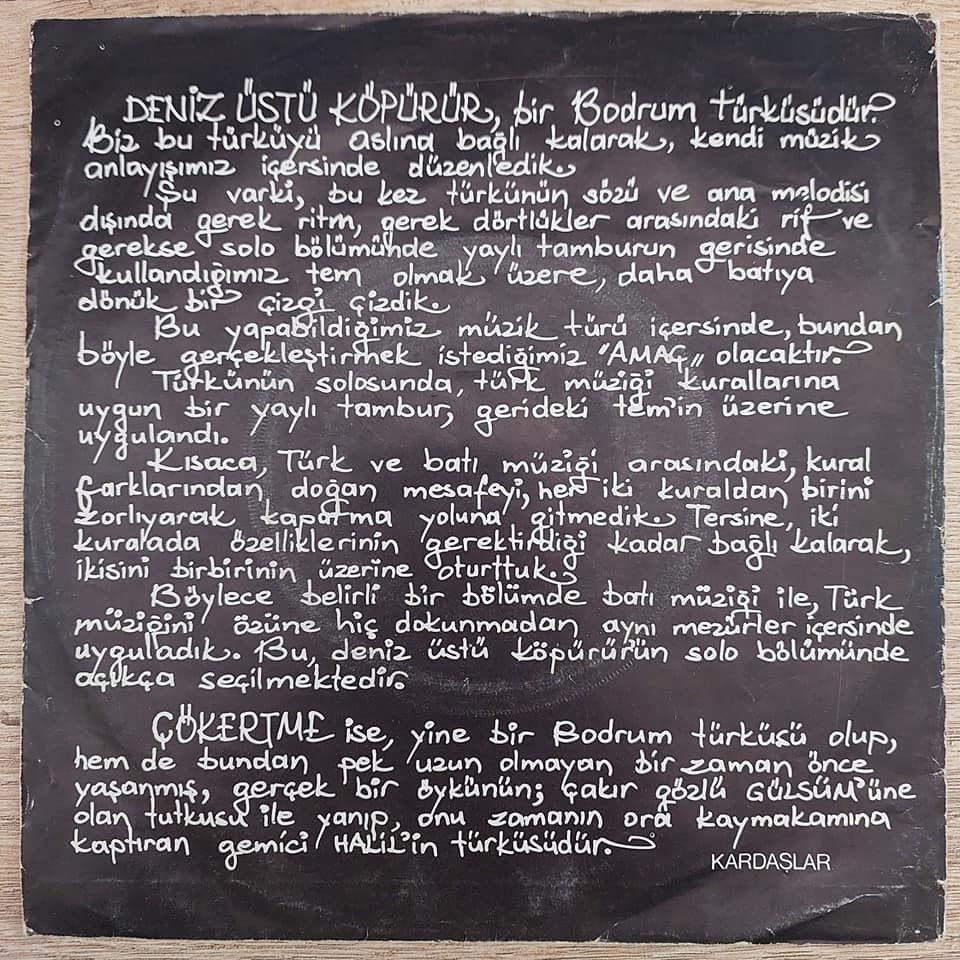 DENİZ ÜSTÜ KÖPÜRÜR, bir Bodrum türküsüdür.
Biz bu türküyü aslına bağlı kalarak, kendi müzik
anlayışımız içersinde düzenledik.
Şu varki, bu kez türkünün sözü ve ana melodisi
dışında gerek ritm, gerek dörtlükler arasındaki rif ve
gerekse solo bölümünde yaylı tamburun gerisinde
kullandığımız tem olmak üzere, daha batıya
dönük bir çizgi çizdik.
Bu yapabildiğimiz müzik türü içersinde, bundan
böyle gerçekleştirmek istediğimiz "AMAÇ" olacaktır.
Türkünün solosunda, türk müziği kurallarına
uygun bir yaylı tambur, gerideki tem'in üzerine
uygulandı.
Kısaca, Türk ve batı müziği arasındaki, kural
farklarından doğan mesafeyi, her iki kuraldan birini
zorlıyarak kapatma yoluna gitmedik. Tersine, iki
kuralada özelliklerinin gerektirdiği kadar bağlı kalarak,
ikisini birbirinin üzerine oturttuk.
Böylece belirli bir bölümde batı müziği ile, Türk
müziğini özüne hiç dokunmadan aynı mezürler içersinde
uyguladık. Bu, deniz üstü köpürür'ün solo bölümünde
açıkça seçilmektedir.
ÇÖKERTME ise, yine bir Bodrum türküsü olup,
hem de bundan pek uzun olmayan bir zaman önce
yaşanmış, gerçek bir öykünün; çakır gözlü GÜLSÜM'üne
olan tutkusu ile yanıp, onu zamanın ora kaymakamına
kaptıran gemici HALİL'in türküsüdür.
KARDAŞLAR